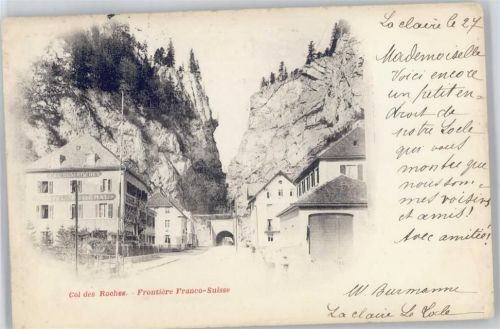 La claire le 27
Mademoiselle
Voici encore
un petit en-
droit de
notre Locle
que vous
montre que
nous som-
mes voisins
et amis!
Avec amitiés!
Col des Roches. - Frontière Franco-Suisse
W. Burmanne
La claire Le Locle